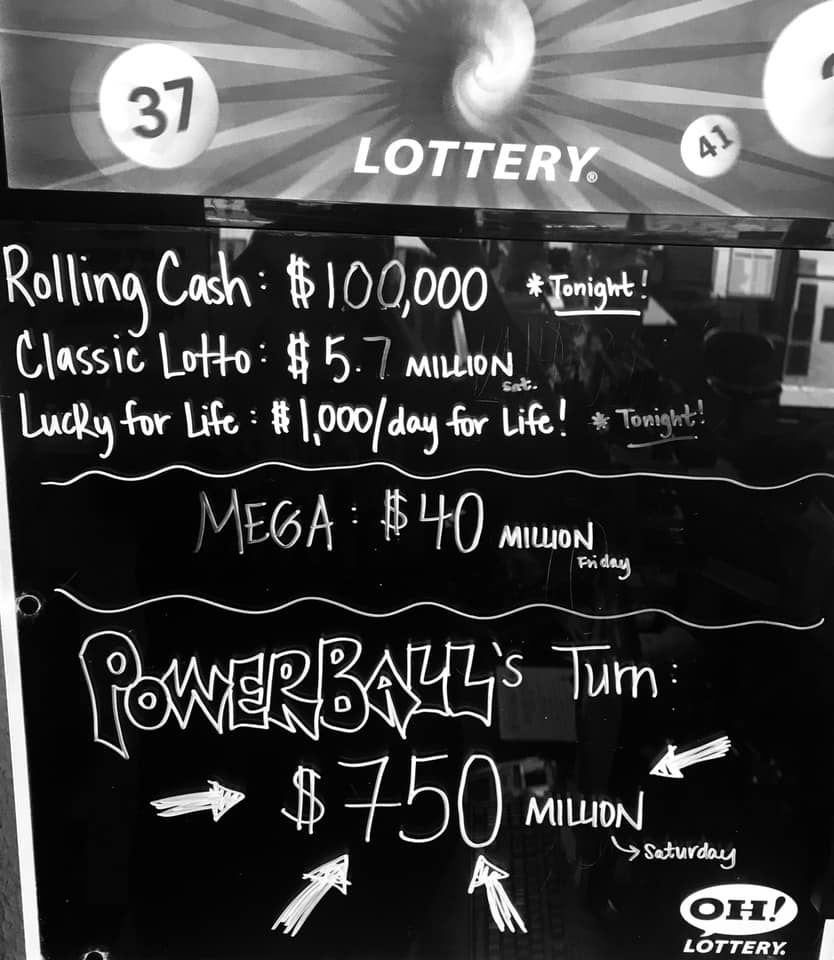 37
LOTTERY®
41
Rolling Cash: $100,000 *Tonight!
Classic Lotto: $5.7 MILLION
Sat.
Lucky for Life: $1,000/day for Life! * Tonight!
MEGA: $40 MILLION
Friday
POWERBALL's Turn:
$750 MILLION
Saturday
OH!
LOTTERY.